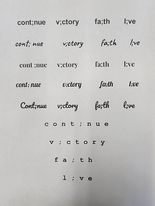 cont;nue v;ctory fa;th l;ve
cont; nue v;ctory fa;th l;ve
cont ;nue v;ctory fa;th l;ve
cont; nue v;ctory fa;th l;ve
Cont;nue v;ctory fa;th l;ve
cont;nue
v;ctory
fa;th
l;ve